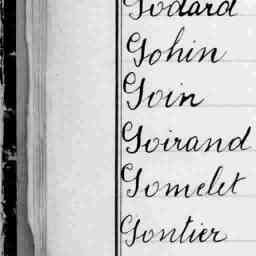 Godard
Gohin
Goin
Goirand
Gomelet
Gontier